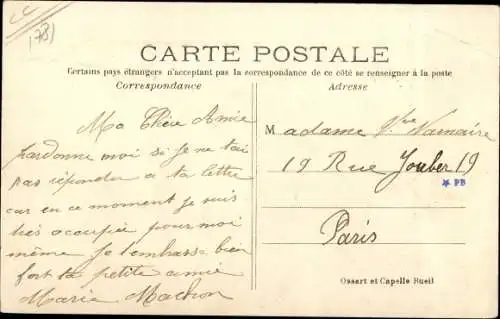 (781
CARTE POSTALE
Certains pays étrangers n'acceptant pas la correspondance de ce côté se renseigner à la poste
Correspondance
Adresse
Ma Chère Amie
pardonne moi si je ne tai
pas répondu a ta lettre
car en ce moment je suis
très occupée pour moi
même je t'embrasse bien
fort ta petite amie
Marie
Madame Vve
19 Rue Jouber 19
* PB
Paris
Ossart et Capelle Rueil